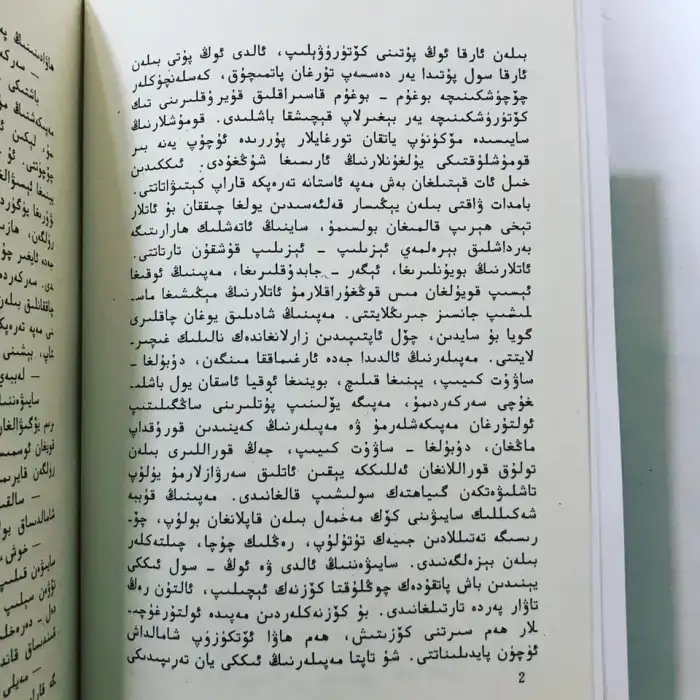 بىلەن ئارقا ئوڭ پۇتىنى كۆتۈرۈۋېلىپ، ئالدى ئوڭ پۇتى بىلەن
ئارقا سول پۇتىدا يەر دەسسەپ تۇرغان پاتمىچۇق، كەسلەنچۈكلەر
چۆچۈشكىنىچە بوغۇم - بوغۇم قاسىراقلىق قۇيرۇقلىرىنى تىك
كۆتۈرۈشكىنىچە يەر بېغىرلاپ قېچىشقا باشلىدى. قومۇشلارنىڭ
سايىسىدە مۆكۈنۈپ ياتقان تورغايلار پۇررىدە ئۇچۇپ يەنە بىر
قومۇشلۇقتىكى يۇلغۇنلارنىڭ ئارىسىغا شۇڭغۇدى. ئىككىدىن
خىل ئات قېتىلغان بەش مەپە ئاستانە تەرەپكە قاراپ كېتىۋاتاتتى.
بامدات ۋاقتى بىلەن يېڭىسار قەلئەسىدىن يولغا چىققان بۇ ئاتلار
تېخى ھېرىپ قالمىغان بولسىمۇ، ساينىڭ ئاتەشلىك ھارارىتىگە
بەرداشلىق بېرەلمەي ئېزىلىپ - ئېزىلىپ قوشقۇن تارتاتتى.
ئاتلارنىڭ بويۇنلىرىغا، ئېگەر - جابدۇقلىرىغا، مەپىنىڭ ئوقىغا
ئېسىپ قويۇلغان مىس قوڭغۇراقلارمۇ ئاتلارنىڭ مېڭىشىغا ماس-
لىشىپ جانسىز جىرىڭلايتتى. مەپىنىڭ شادىلىق يوغان چاقلىرى
گويا بۇ سايدىن، چۆل ئاپتىپىدىن زارلانغاندەك نالىلىك غىچىر-
لايتتى. مەپىلەرنىڭ ئالدىدا جەدە ئارغىماققا مىنگەن، دۇبۇلغا -
ساۋۇت كىيىپ، يېنىغا قىلىچ، بوينىغا ئوقيا ئاسقان يول باشلى-
غۇچى سەركەردىمۇ، مەپىگە يۆلىنىپ پۇتلىرىنى ساڭگىلىتىپ
ئولتۇرغان مەپىكەشلەرمۇ ۋە مەپىلەرنىڭ كەينىدىن قورۇقداپ
ماڭغان، دۇبۇلغا - ساۋۇت كىيىپ، جەڭ قوراللىرى بىلەن
تولۇق قوراللانغان ئەللىككە يېقىن ئاتلىق سەرۋازلارمۇ يۇلۇپ
تاشلىۋەتكەن گىياھتەك سولىشىپ قالغانىدى. مەپىنىڭ قۇببە
شەكىللىك سايىۋىنى كۆك مەخمەل بىلەن قاپلانغان بولۇپ، چۆ-
رىسىگە تەتىللادىن جىيەك تۇتۇلۇپ، رەڭلىك چۇچا، چىلتەكلەر
بىلەن بېزەلگەنىدى. سايىۋەننىڭ ئالدى ۋە ئوڭ - سول ئىككى
يېنىدىن باش پاتقۇدەك چوڭلۇقتا كۆزنەك ئېچىلىپ، ئالتۇن رەڭ
تاۋار پەردە تارتىلغانىدى. بۇ كۆزنەكلەردىن مەپىدە ئولتۇرغۇچى-
لار ھەم سىرتنى كۆزىتىش، ھەم ھاۋا ئۆتكۈزۈپ شامالداش
ئۈچۈن پايدىلىناتتى. شۇ تاپتا مەپىلەرنىڭ ئىككى يان تەرىپىدىكى
2